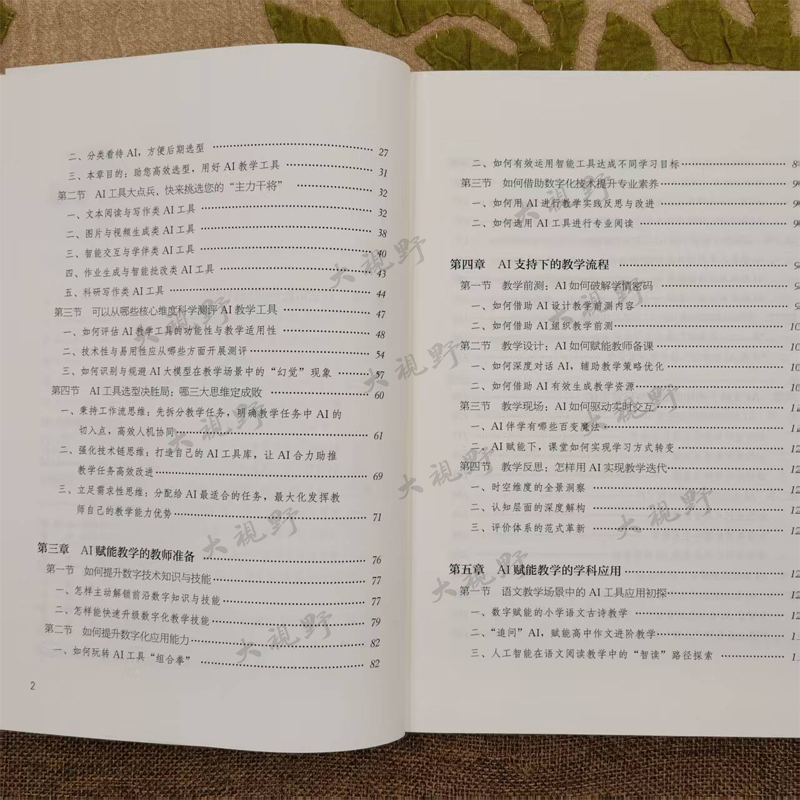 二、分类看待 AI，方便后期选型 …… 27
三、本章目的：助您高效选型，用好 AI 教学工具 …… 31
第二节 AI 工具大点兵，快来挑选您的“主力干将” …… 32
一、文本阅读与写作类 AI 工具 …… 32
二、图片与视频生成类 AI 工具 …… 38
三、智能交互与学伴类 AI 工具 …… 40
四、作业生成与智能批改类 AI 工具 …… 43
五、科研写作类 AI 工具 …… 44
第三节 可以从哪些核心维度科学测评 AI 教学工具 …… 47
一、如何评估 AI 教学工具的功能性与教学适用性 …… 48
二、技术性与易用性应从哪些方面开展测评 …… 54
三、如何识别与规避 AI 大模型在教学场景中的“幻觉”现象 …… 57
第四节 AI 工具选型决胜局：哪三大思维定成败 …… 60
一、秉持工作流思维：先拆分教学任务，明确教学任务中 AI 的
切入点，高效人机协同 …… 61
二、强化技术链思维：打造自己的 AI 工具库，让 AI 合力助推
教学任务高效改进 …… 69
三、立足需求性思维：分配给 AI 最适合的任务，最大化发挥教
师自己的教学能力优势 …… 71
第三章 AI 赋能教学的教师准备 …… 76
第一节 如何提升数字技术知识与技能 …… 77
一、怎样主动解锁前沿数字知识与技能 …… 77
二、怎样能快速升级数字化教学技能 …… 79
第二节 如何提升数字化应用能力 …… 82
一、如何玩转 AI 工具“组合拳” …… 82
2
二、如何有效运用智能工具达成不同学习目标 …… 8
第三节 如何借助数字化技术提升专业素养 …… 9
一、如何用 AI 进行教学实践反思与改进 …… 9
二、如何选用 AI 工具进行专业阅读 …… 9
第四章 AI 支持下的教学流程 …… 9
第一节 教学前测：AI 如何破解学情密码 …… 9
一、如何借助 AI 设计教学前测内容 …… 9
二、如何借助 AI 组织教学前测 …… 10
第二节 教学设计：AI 如何赋能教师备课 …… 10
一、如何深度对话 AI，辅助教学策略优化 …… 10
二、如何借助 AI 有效生成教学资源 …… 10
第三节 教学现场：AI 如何驱动实时交互 …… 1
一、AI 伴学有哪些百变魔法 …… 1
二、AI 赋能下，课堂如何实现学习方式转变 …… 12
第四节 教学反思：怎样用 AI 实现教学迭代 …… 12
一、时空维度的全景洞察 …… 12
二、认知层面的深度解构 …… 12
三、评价体系的范式革新 …… 12
第五章 AI 赋能教学的学科应用 …… 12
第一节 语文教学场景中的 AI 工具应用初探 …… 12
一、数字赋能的小学语文古诗教学 …… 1
二、“追问”AI，赋能高中作文进阶教学 …… 1
三、人工智能在语文阅读教学中的“智读”路径探索 …… 1
大视野
大视野
大视野
大视野
大视野
大视野
大视野
大视野
大视野
大视野
大视野
大视野